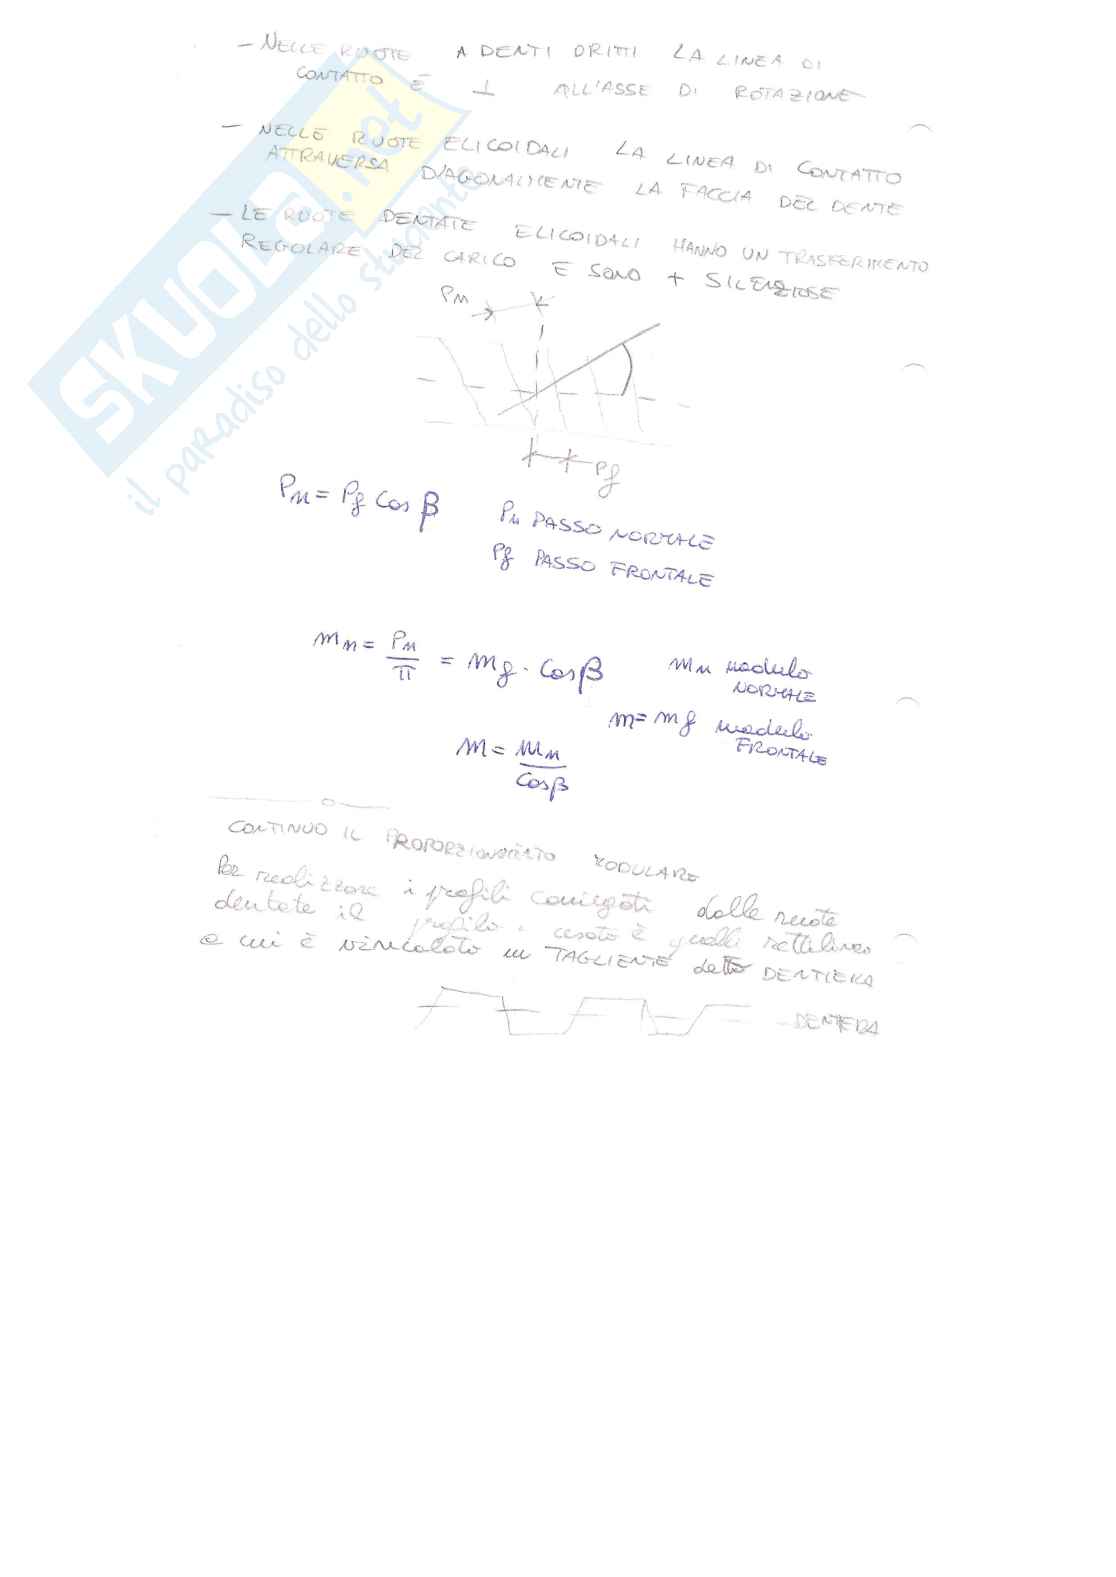 - NELLE RUOTE A DENTI DRITTI LA LINEA DI
CONTATTO È ⊥ ALL'ASSE DI ROTAZIONE
- NELLE RUOTE ELICOIDALI LA LINEA DI CONTATTO
ATTRAVERSA DIAGONALMENTE LA FACCIA DEL DENTE
- LE RUOTE DENTATE ELICOIDALI HANNO UN TRASFERIMENTO
REGOLARE DEL CARICO E SONO + SILENZIOSE
SKUOLA.net
il paradiso dello studente
Pn
Pf
Pn = Pf cos β
Pn PASSO NORMALE
Pf PASSO FRONTALE
mn = Pn/π = mf · cosβ
mn modulo
NORMALE
m = mf modulo
FRONTALE
m = mn/cosβ
CONTINUO IL PROPORZIONAMENTO MODULARE
Per realizzare i profili coniugati delle ruote
dentate il profilo usato è quello rettilineo
a cui è vincolato un TAGLIENTE detto DENTIERA
DENTIERA